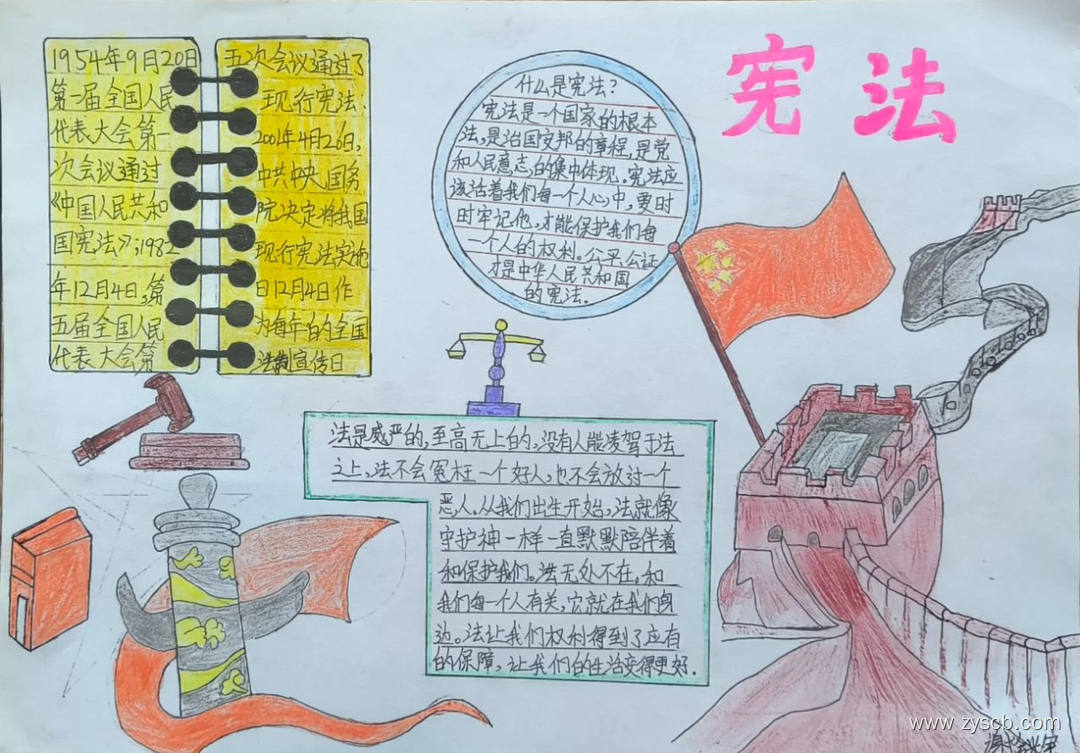 宪法
1954年9月20日
第一届全国人民
代表大会第一
次会议通过
《中国人民共和
国宪法》;1982
年12月4日,第
五届全国人民
代表大会第
五次会议通过了
现行宪法.
2001年4月26日,
中共中央、国务
院决定将我国
现行宪法实施
日12月4日作
为每年的全国
法制宣传日
什么是宪法?
宪法是一个国家的根本
法,是治国安邦的章程,是党
和人民意志,的集中体现.宪法应
该活着我们每一个人心中,要时
时牢记他,才能保护我们每
一个人的权利。公平,公证
才是中华人民共和国
的宪法.
法是威严的,至高无上的,没有人能凌驾于法
之上,法不会冤枉一个好人,也不会放过一个
恶人,从我们出生开始,法就像
守护神一样一直默默陪伴着
和保护我们。法无处不在。和
我们每一个人有关,它就在我们身
边。法让我们权利得到了应有
的保障,让我们的生活变得更好.
www.zyscb.com